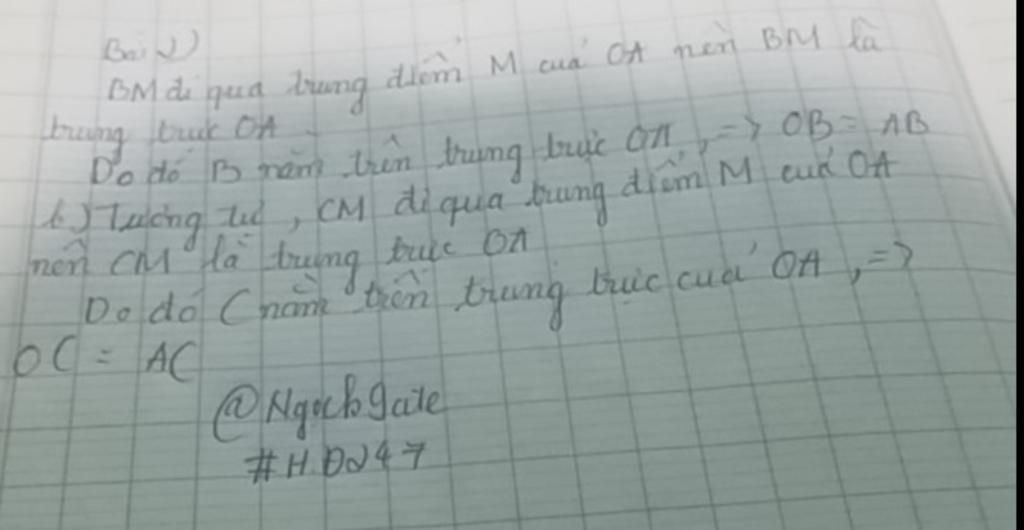 Bài 2)
BM đi qua trung điểm M của OA nên BM là
trung trực OA.
Do đó B nằm trên trung trực OA, => OB = AB
b) Tương tự, CM đi qua trung điểm M của OA
nên CM là trung trực OA
Do đó C nằm trên trung trực của OA, =>
OC = AC
@Ngockgate
#HD247